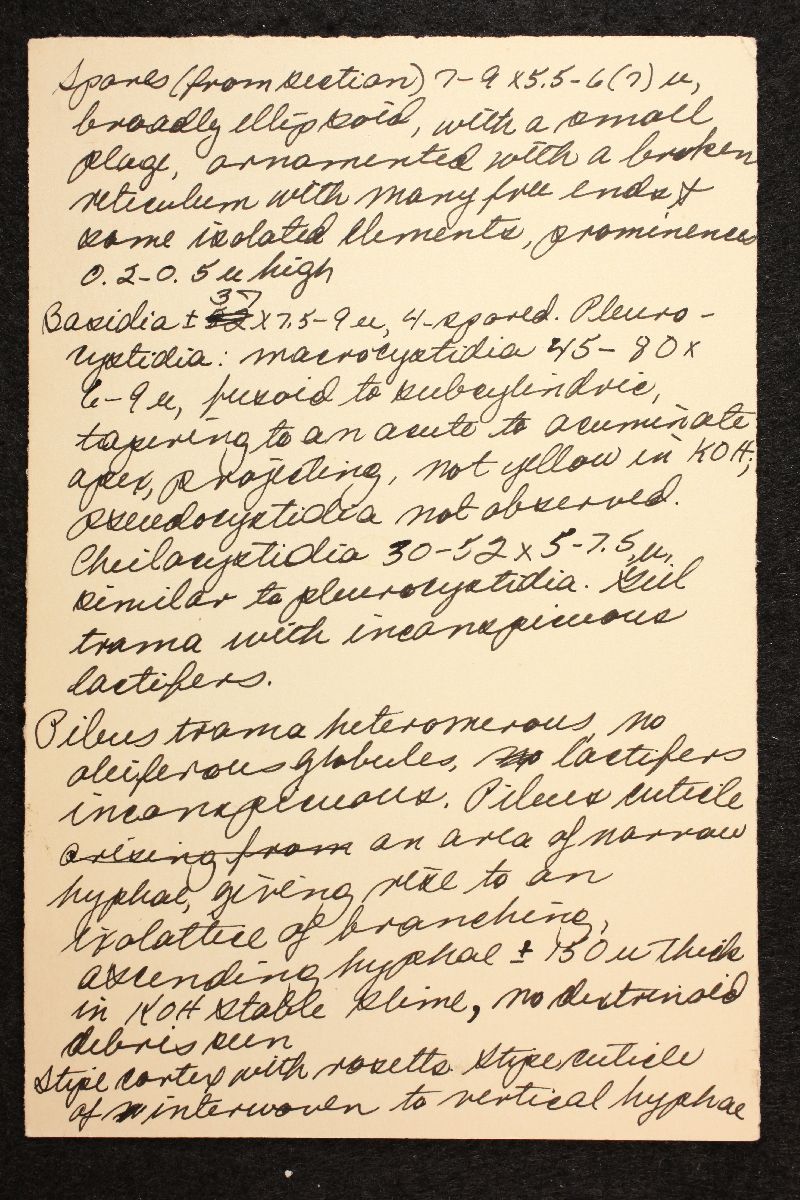 Spores (from section) 7-9 x 5.5-6(7) u,
broadly ellipsoid, with a small
plage, ornamented with a broken
reticulum with many free ends &
some isolated elements, prominences
0.2-0.5 u high
37
Basidia ± 32 x 7.5-9 u, 4-spored. Pleuro-
cystidia: macrocystidia 45-80 x
6-9 u, fusoid to subcylindric,
tapering to an acute to acuminate
apex, projecting, not yellow in KOH;
pseudocystidia not observed.
Cheilocystidia 30-52 x 5-7.5 u,
similar to pleurocystidia. Gill
trama with inconspicuous
lactifers.
Pileus trama heteromerous, no
oleiferous globules, no lactifers
inconspicuous. Pileus cuticle
arising from an area of narrow
hyphae, giving rise to an
ixolattice of branching,
ascending hyphae ± 150 u thick
in KOH stable slime, no dextrinoid
debris seen
Stipe cortex with rosetts. Stipe cuticle
of interwoven to vertical hyphae